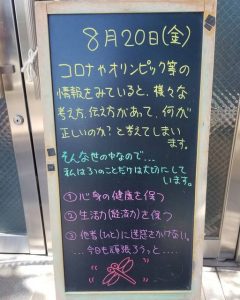 8月20日(金)
コロナやオリンピック等の
情報をみていると、様々な
考え方、伝え方があって、何が
正しいのか?と考えてしまい
ます。
そんな世の中なので…
私は3つのことだけは大切にして
います。
①心身の健康を保つ
②生活力(経済力)を保つ
③他者(ひと)に迷惑をかけない。
…今日も頑張ろうっと……